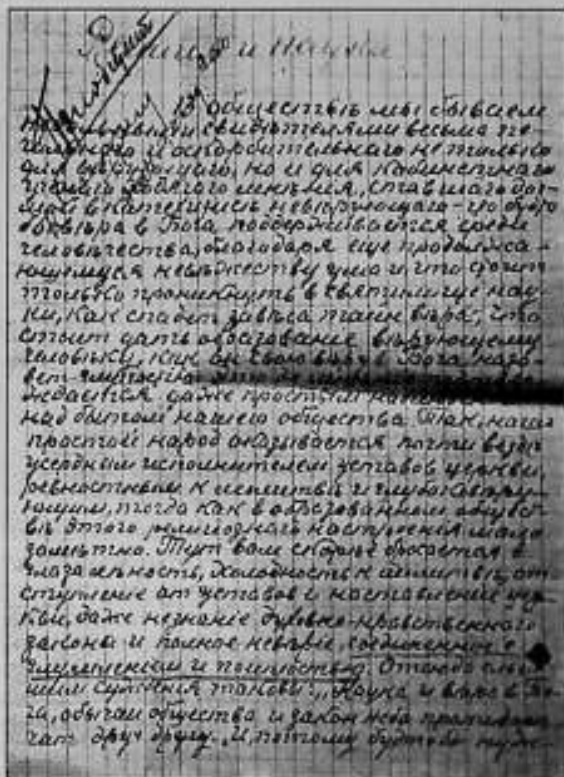 и наука
В обществѣ мы бываем
свидѣтелями весьма пе-
чальнаго и оскорбительнаго не только
для вѣрующаго, но и для кабинетнаго
мнѣния, ставшаго дог-
мой в катехизисѣ невѣрующаго - что будто
бы вѣра в Бога поддерживается среди
человѣчества, благодаря еще продолжа-
ющемуся невѣжеству ума и что стоит
только проникнуть в святилище нау-
ки, как спадет завѣса тайн вѣры, что
стоит дать образование вѣрующему
человѣку, как он свою вѣру в Бога назо-
вет
ждается даже простым
над бытом нашего общества. Так, наш
простой народ оказывается почти везде
усердным исполнителем уставов церкви,
ревностным к молитвѣ и глубоковѣру-
ющим, тогда как в образованном общест-
вѣ этого религиознаго настроения мало
замѣтно. Тут вам скорѣе бросается в
глаза холодность к молитвѣ, от-
ступление от уставов и наставление цер-
кви, даже незнание духовно-нравственнаго
закона и полное невѣрие, соединенное с
и пошлостью. Отсюда
суждения таковы: „Наука и вѣра в Бо-
га, обычаи общества и закон неба
друг другу. И, потому будто бы